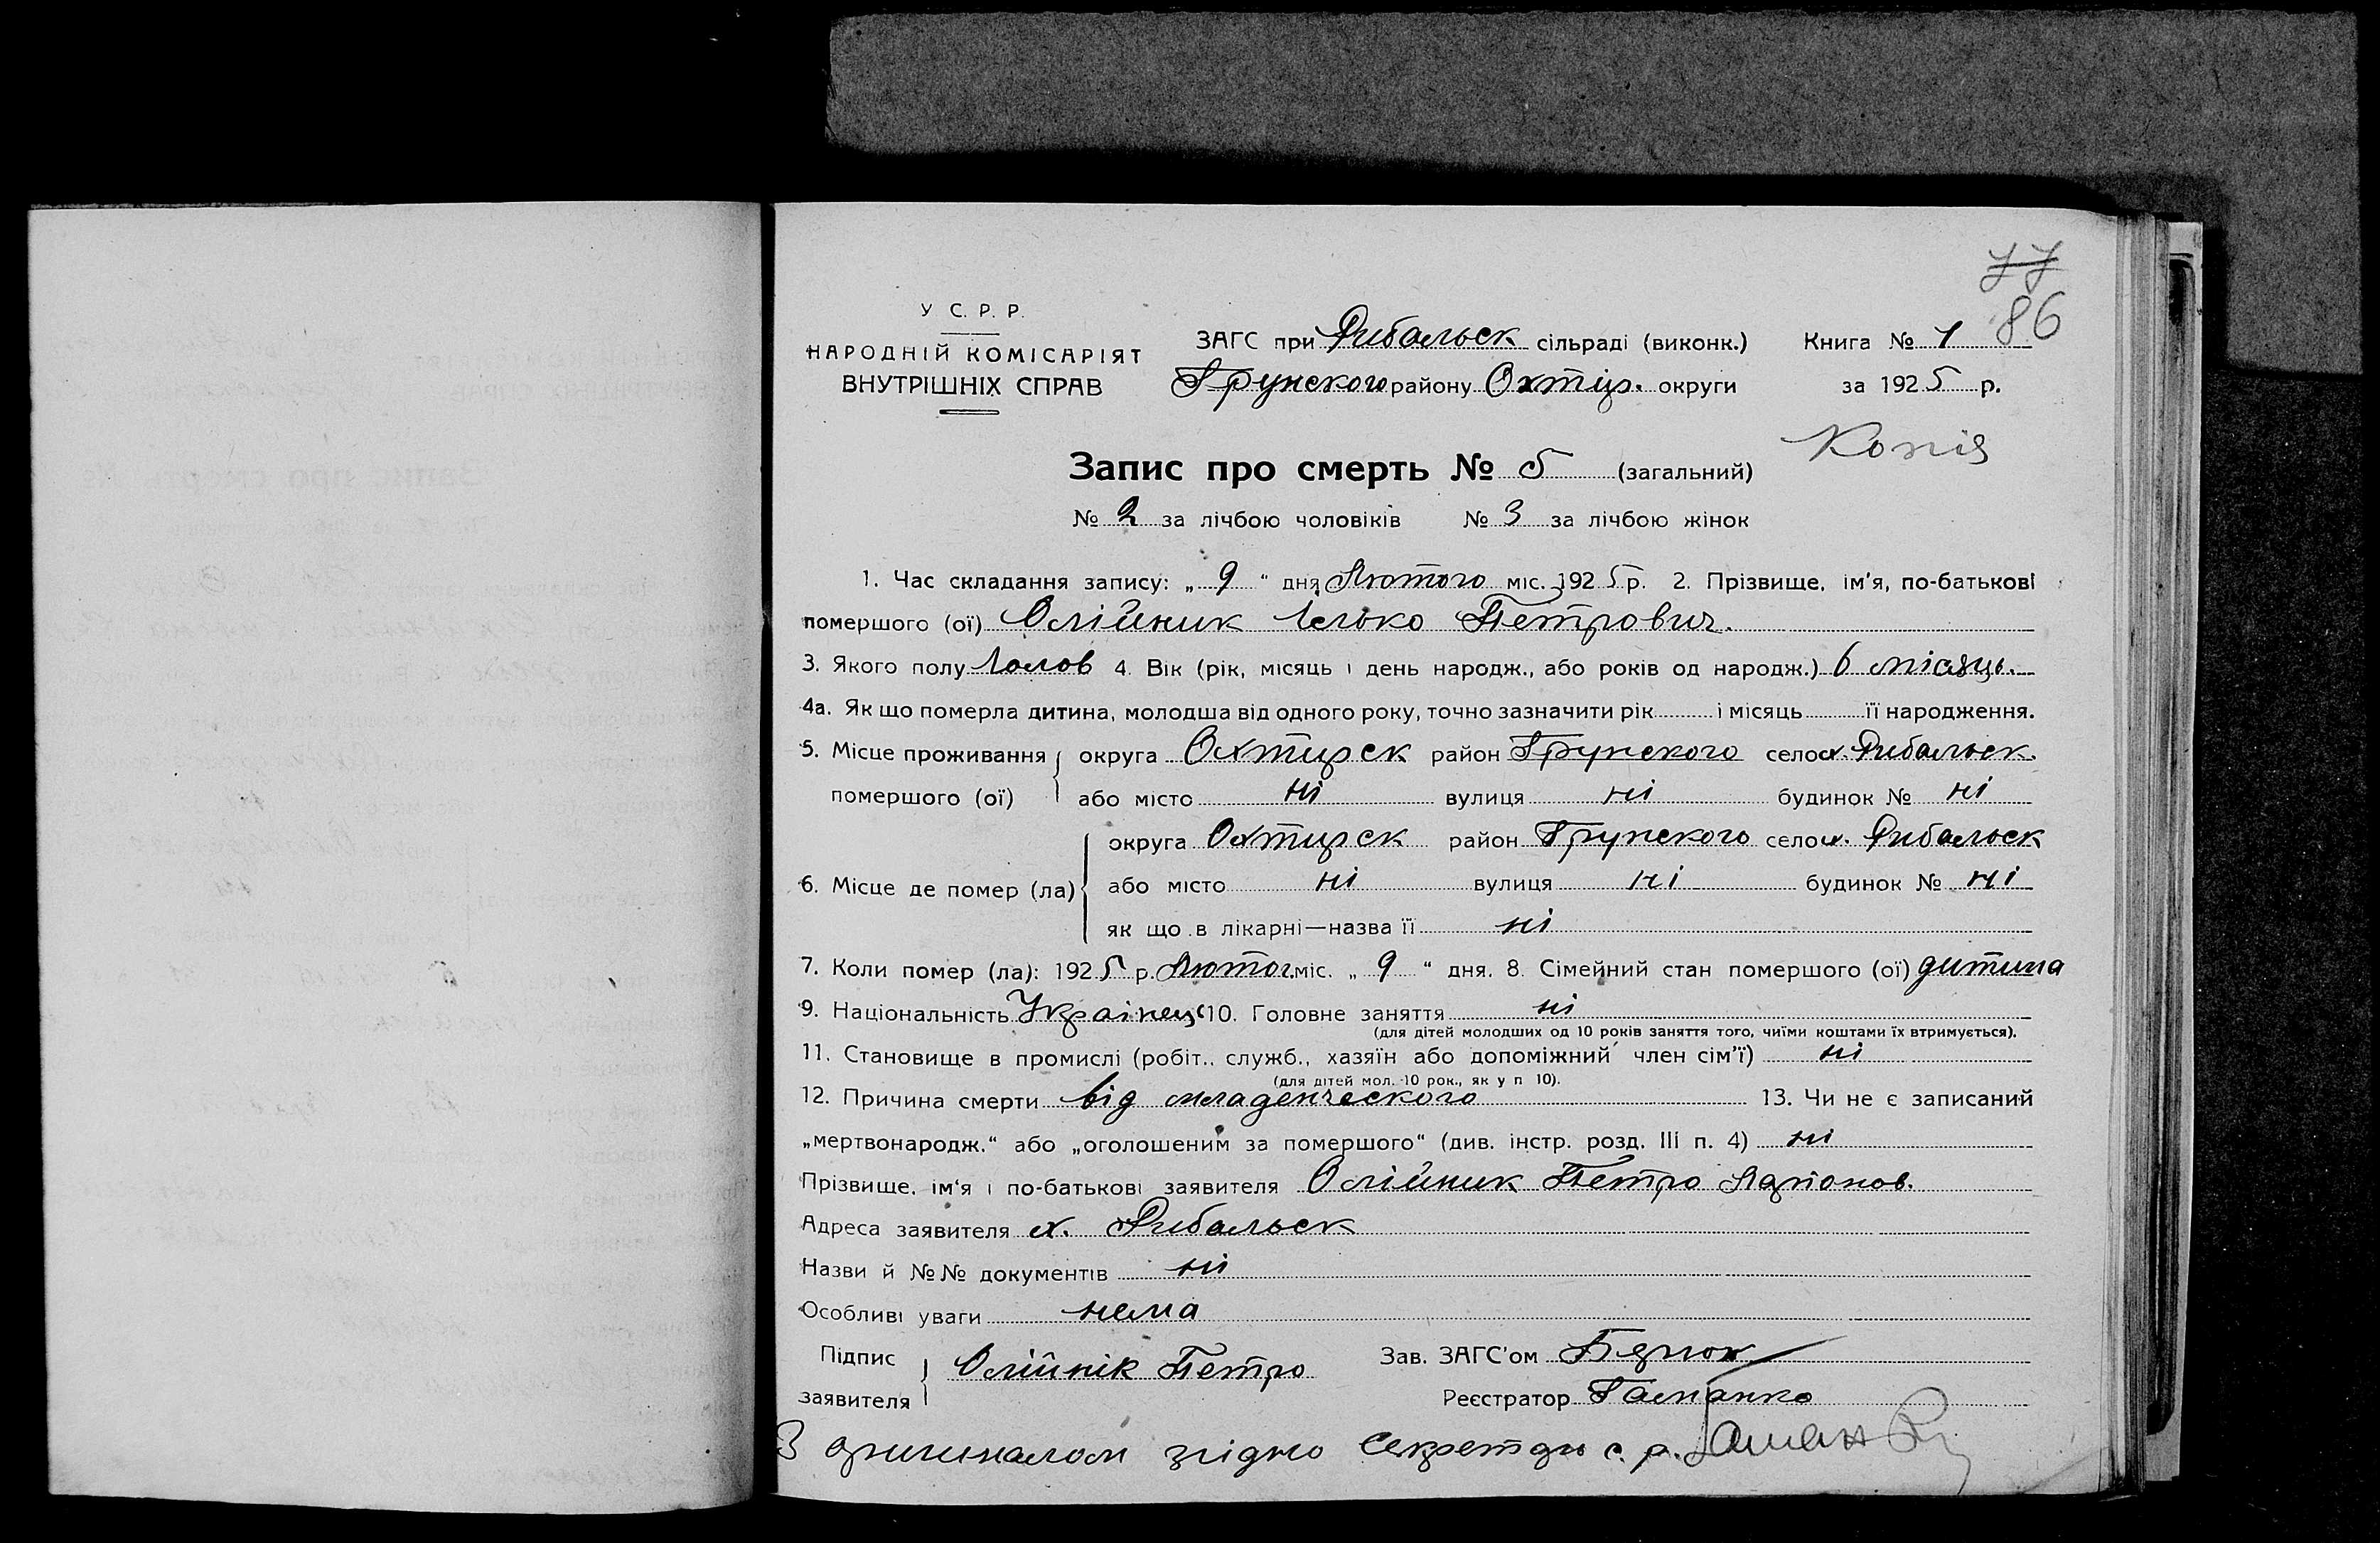 77
86
У С. Р. Р.
НАРОДНІЙ КОМІСАРІЯТ
ВНУТРІШНІХ СПРАВ
ЗАГС при Рибальск сільраді (виконк.) Книга № 1
Грунского району Охтир. округи за 1925 р.
Копія
Запис про смерть № 5 (загальний)
№ 2 за лічбою чоловіків № 3 за лічбою жінок
1. Час складання запису: „ 9 “ дня Лютого міс. 1925 р. 2. Прізвище, ім'я, по-батькові
помершого (ої) Олійник Ілько Петрович.
3. Якого полу Чолов 4. Вік (рік, місяць і день народж., або років од народж.) 6 місяць.
4а. Як що померла дитина, молодша від одного року, точно зазначити рік і місяць її народження.
5. Місце проживання округа Охтирск район Грунского село х. Рибальск.
помершого (ої) або місто ні вулиця ні будинок № ні
округа Охтирск район Грунского село х. Рибальск
6. Місце де помер (ла) або місто ні вулиця ні будинок № ні
як що в лікарні—назва її ні
7. Коли помер (ла): 1925 р. Лютог. міс. „ 9 “ дня. 8. Сімейний стан помершого (ої) дитина
9. Національність Українец 10. Головне заняття ні
(для дітей молодших од 10 років заняття того, чиїми коштами їх втримується).
11. Становище в промислі (робіт., служб., хазяїн або допоміжний член сім'ї) ні
(для дітей мол. 10 рок., як у п 10).
12. Причина смерти від младенческого 13. Чи не є записаний
„мертвонародж.“ або „оголошеним за помершого“ (див. інстр. розд. III п. 4) ні
Прізвище, ім'я і по-батькові заявителя Олійник Петро Ларіонов.
Адреса заявителя х. Рибальск
Назви й №№ документів ні
Особливі уваги нема
Підпис
заявителя Олійнік Петро
Зав. ЗАГС'ом
Реєстратор Гаманко
З оригиналом згідно Секретарь с. р.